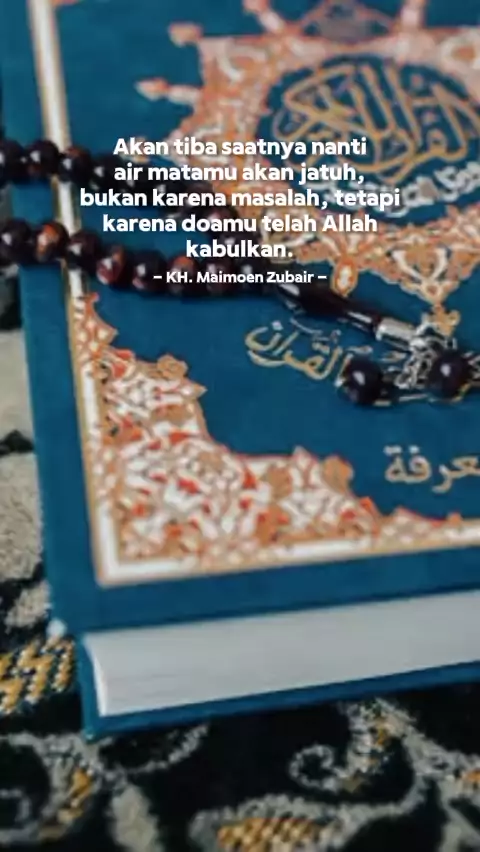 Akan tiba saatnya nanti
air matamu akan jatuh,
bukan karena masalah, tetapi
karena doamu telah Allah
kabulkan.
– KH. Maimoen Zubair –
القرآن